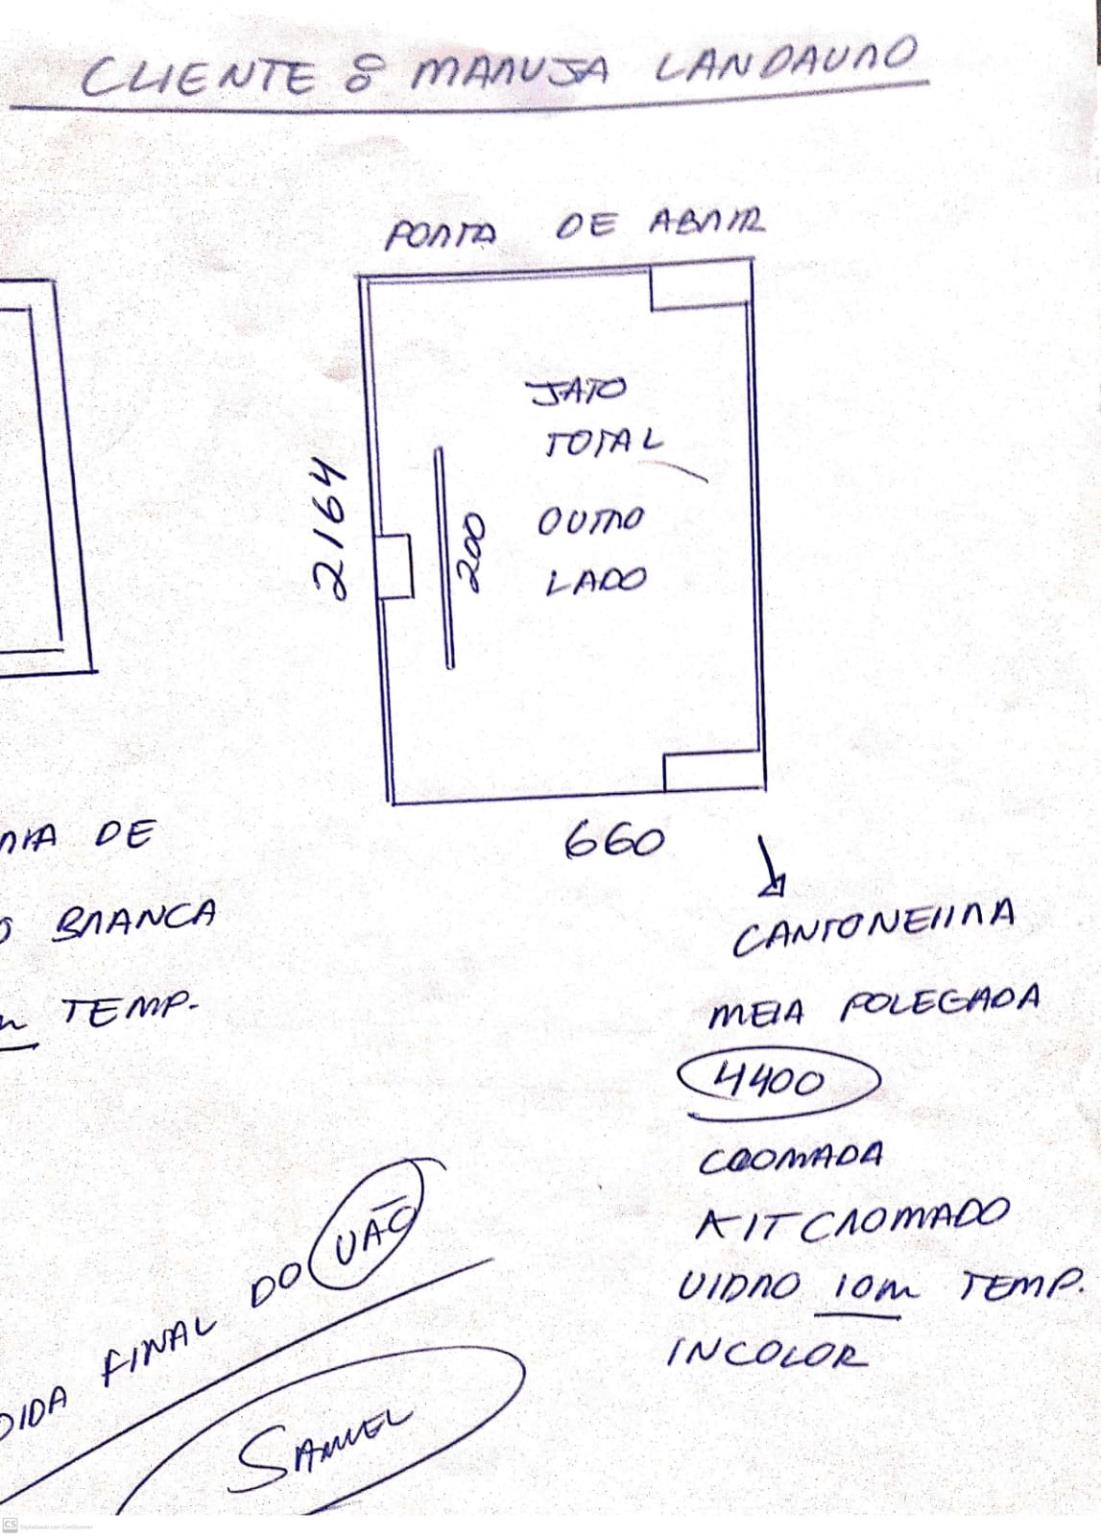 CLIENTE : MARUJA LANDAURO
PORTA DE ABRIR
JATO
TOTAL
OUTRO
LADO
2164
200
660
RIA DE
O BRANCA
m TEMP.
CANTONEIRA
MEIA POLEGADA
4400
CROMADA
KIT CROMADO
VIDRO 10m TEMP.
INCOLOR
DIDA FINAL DO VÃO
SAMUEL
CS Digitalizado com CamScanner